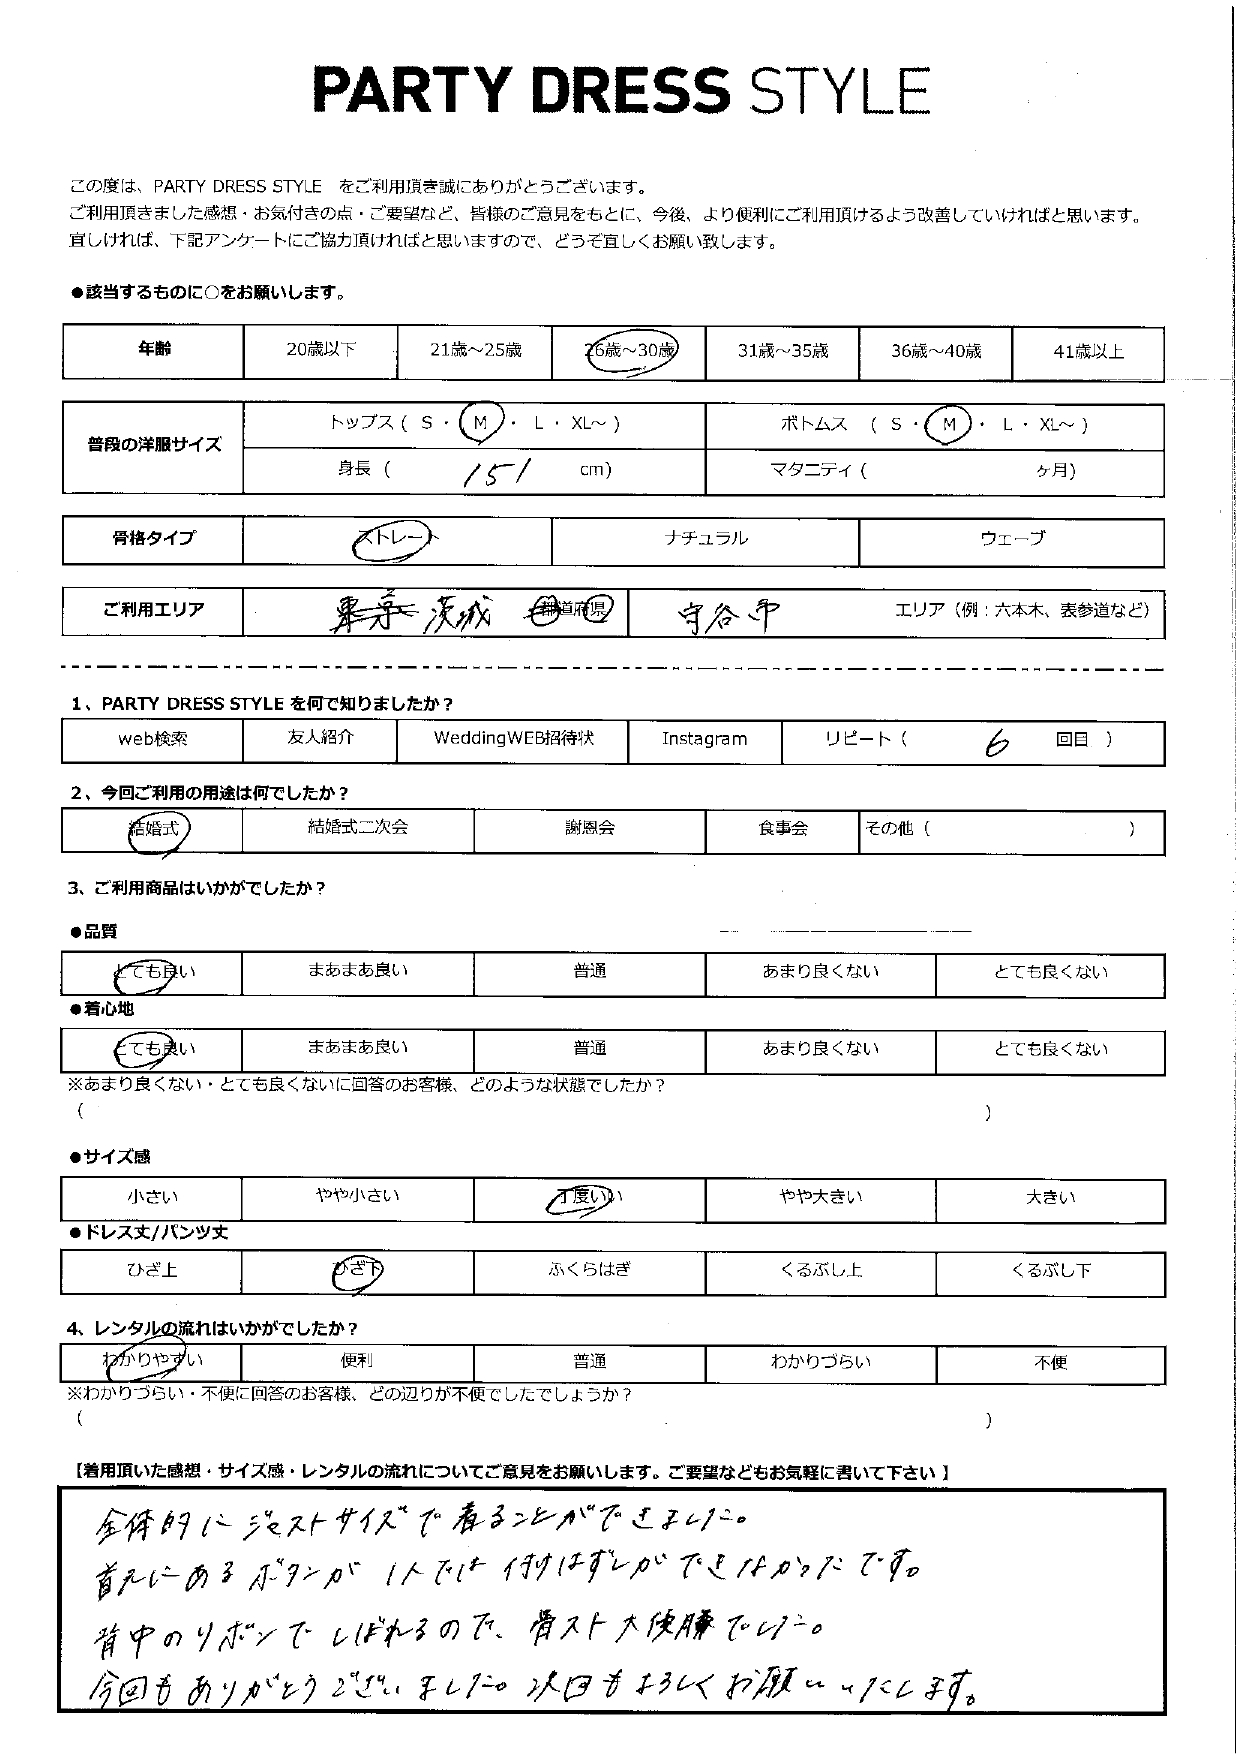 PARTY DRESS STYLE
この度は、PARTY DRESS STYLE をご利用頂き誠にありがとうございます。
ご利用頂きました感想・お気付きの点・ご要望など、皆様のご意見をもとに、今後、より便利にご利用頂けるよう改善していければと思います。
宜しければ、下記アンケートにご協力頂ければと思いますので、どうぞ宜しくお願い致します。
●該当するものに○をお願いします。
年齢 20歳以下 21歳～25歳 26歳～30歳 31歳～35歳 36歳～40歳 41歳以上
普段の洋服サイズ トップス ( S ・ M ・ L ・ XL～ ) ボトムス ( S ・ M ・ L ・ XL～ )
身長 ( 151 cm) マタニティ ( ヶ月)
骨格タイプ ストレート ナチュラル ウェーブ
ご利用エリア 東京 茨城 都道府県 守谷市 エリア（例：六本木、表参道など）
1、PARTY DRESS STYLE を何で知りましたか？
web検索 友人紹介 WeddingWEB招待状 Instagram リピート ( 6 回目 )
2、今回ご利用の用途は何でしたか？
結婚式 結婚式二次会 謝恩会 食事会 その他 ( )
3、ご利用商品はいかがでしたか？
●品質
とても良い まあまあ良い 普通 あまり良くない とても良くない
●着心地
とても良い まあまあ良い 普通 あまり良くない とても良くない
※あまり良くない・とても良くないに回答のお客様、どのような状態でしたか？
( )
●サイズ感
小さい やや小さい 丁度いい やや大きい 大きい
●ドレス丈/パンツ丈
ひざ上 ひざ下 ふくらはぎ くるぶし上 くるぶし下
4、レンタルの流れはいかがでしたか？
わかりやすい 便利 普通 わかりづらい 不便
※わかりづらい・不便に回答のお客様、どの辺りが不便でしたでしょうか？
( )
【着用頂いた感想・サイズ感・レンタルの流れについてご意見をお願いします。ご要望などもお気軽に書いて下さい】
全体的にジャストサイズで着ることができました。
首元にあるボタンが1人では付けはずしができなかったです。
背中のリボンでしばれるので、骨スト大優勝でした。
今回もありがとうございました。次回もよろしくお願いいたします。